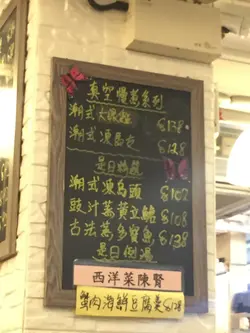 真空慢煮系列
潮式大眼雞 $138
潮式凍馬友 $128
是日精選
潮式凍烏頭 $102
豉汁蒸黃立鯧 $108
古法蒸多寶魚 $138
是日例湯
西洋菜陳腎
蟹肉海鮮豆腐羹